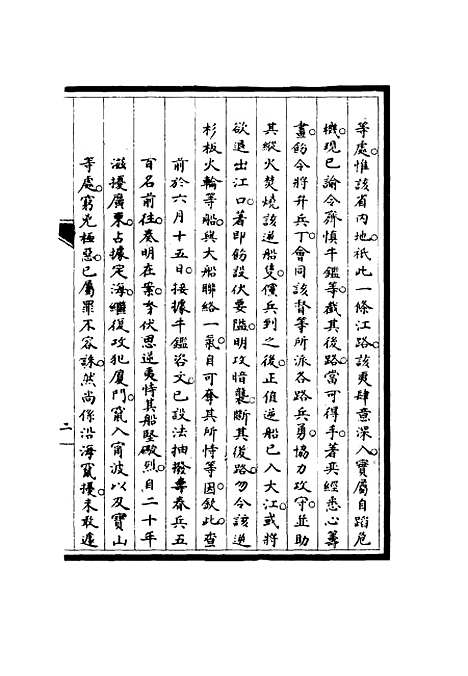 等處。惟該省內地。祇此一條江路。該夷肆意深入。實屬自蹈危
機。現已諭令齊慎牛鑑等。截其後路。當可得手。著奕經悉心籌
畫。飭令將弁兵丁會同該督等所派各路兵勇。協力攻守。並助
其縱火焚燒該逆船隻。儻兵到之後。正值逆船已入大江。或將
欲退出江口。著即飭設伏要隘。明攻暗襲。斷其後路。勿令該逆
杉板火輪等船。與大船聯絡一氣。自可奪其所恃等因。欽此。查
前於六月十五日。接據牛鑑咨文。已設法抽撥壽春兵五
百名前往。奏明在案。李伏思逆夷恃其船堅礮烈。自二十年
滋擾廣東。占據定海。繼復攻犯廈門。竄入甯波以及寶山
等處。窮兇極惡。已屬罪不容誅。然尚係沿海竄擾。未敢遽
二